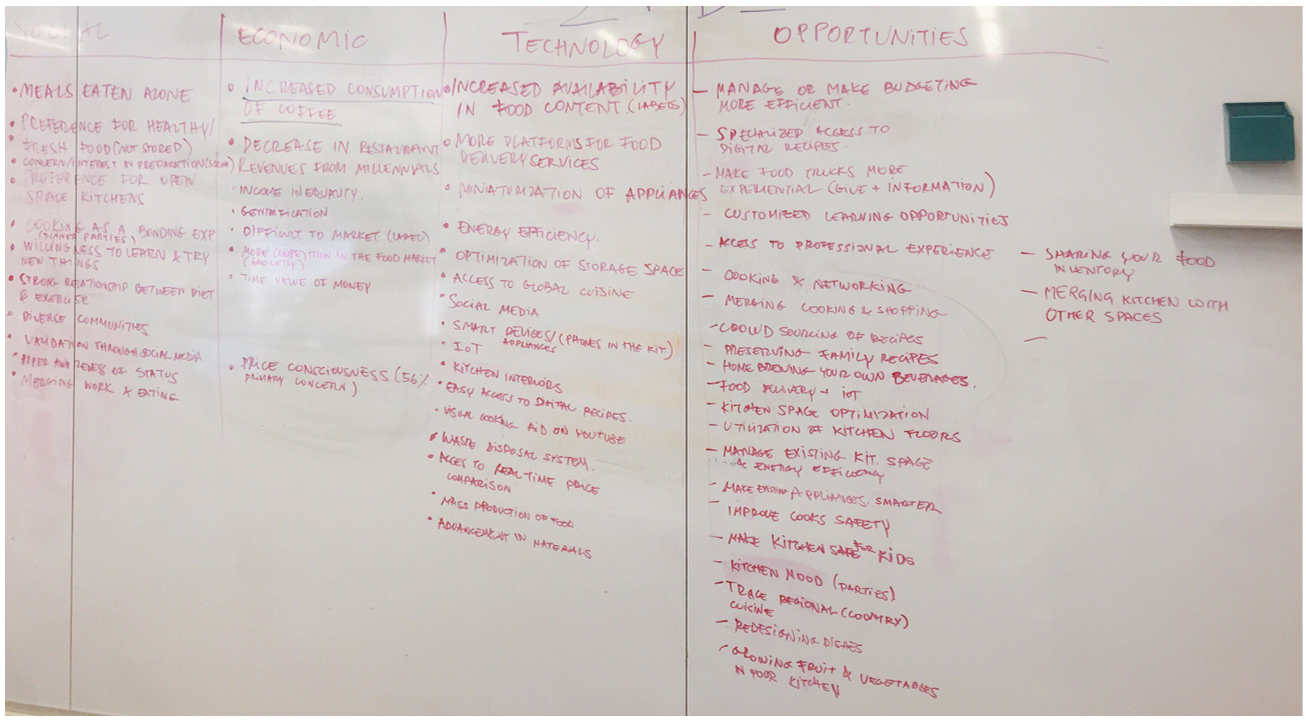 SOCIAL
• MEALS EATEN ALONE
• PREFERENCE FOR HEALTHY/
• FRESH FOOD (NOT STORED)
• CONCERN/INTEREST IN
• PREFERENCE FOR OPEN
SPACE KITCHENS
• COOKING AS A BONDING EXP
(DINNER PARTIES)
• WILLINGNESS TO LEARN & TRY
NEW THINGS
• STRONG RELATIONSHIP BETWEEN DIET
& EXERCISE
• DIVERSE COMMUNITIES
• VALIDATION THROUGH SOCIAL MEDIA
OF STATUS
• MERGING WORK & EATING
ECONOMIC
• INCREASED CONSUMPTION
OF COFFEE
• DECREASE IN RESTAURANT
REVENUES FROM MILLENNIALS
• INCOME INEQUALITY.
• GENTRIFICATION
• DIFFICULT TO MARKET (LABEL)
• MORE COMPETITION IN THE FOOD MARKET
(GROCERY)
• TIME VALUE OF MONEY
• PRICE CONSCIOUSNESS (56%
PRIMARY CONCERN)
TECHNOLOGY
• INCREASED AVAILABILITY
IN FOOD CONTENT (LABELS)
• MORE PLATFORMS FOR FOOD
DELIVERY SERVICES
• MINIATURIZATION OF APPLIANCES
• ENERGY EFFICIENCY.
• OPTIMIZATION OF STORAGE SPACE
• ACCESS TO GLOBAL CUISINE
• SOCIAL MEDIA
• SMART DEVICES/ (PHONES IN THE KIT)
APPLIANCES
• IOT
• KITCHEN INTERIORS
• EASY ACCESS TO DIGITAL RECIPES.
• VISUAL COOKING AID ON YOUTUBE
• WASTE DISPOSAL SYSTEM.
• ACCES TO REAL TIME PRICE
COMPARISON
• MASS PRODUCTION OF FOOD
• ADVANCEMENT IN MATERIALS
OPPORTUNITIES
– MANAGE OR MAKE BUDGETING
MORE EFFICIENT.
– SPECIALIZED ACCESS TO
DIGITAL RECIPES.
– MAKE FOOD TRUCKS MORE
EXPERIENTIAL (GIVE + INFORMATION)
– CUSTOMIZED LEARNING OPPORTUNITIES
– ACCESS TO PROFESSIONAL EXPERIENCE
– COOKING & NETWORKING
– MERGING COOKING & SHOPPING
– CROWD SOURCING OF RECIPES
– PRESERVING FAMILY RECIPES
– HOME BREWING YOUR OWN BEVERAGES.
– FOOD DELIVERY + IOT
– KITCHEN SPACE OPTIMIZATION
– UTILIZATION OF KITCHEN FLOORS
– MANAGE EXISTING KIT. SPACE
& ENERGY EFFICIENCY
– MAKE EXISTING APPLIANCES SMARTER
– IMPROVE COOKS SAFETY
– MAKE KITCHEN SAFE FOR KIDS
– KITCHEN MOOD (PARTIES)
– TRACE REGIONAL (COUNTRY)
CUISINE
– REDESIGNING DISHES
– GROWING FRUIT & VEGETABLES
IN YOUR KITCHEN
– SHARING YOUR FOOD
INVENTORY
– MERGING KITCHEN WITH
OTHER SPACES
–